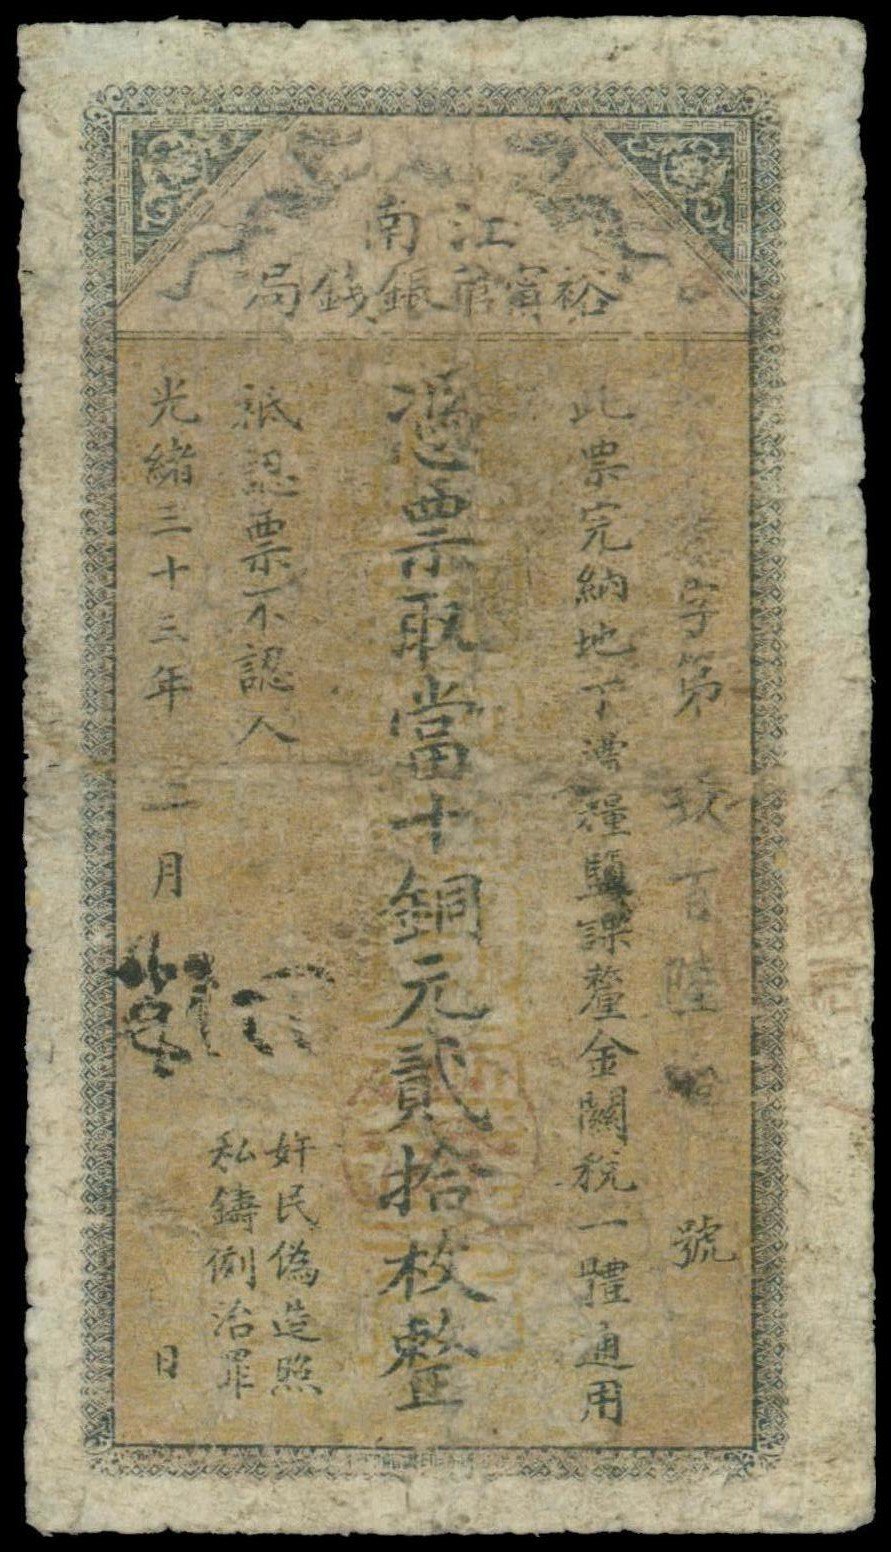 江南
裕寧官銀錢局
字第玖百陸拾號
此票完納地丁漕糧鹽課釐金關稅一體通用
憑票取當十銅元貳拾枚整
祇認票不認人
奸民偽造照
私鑄例治罪
光緒三十三年二月 日